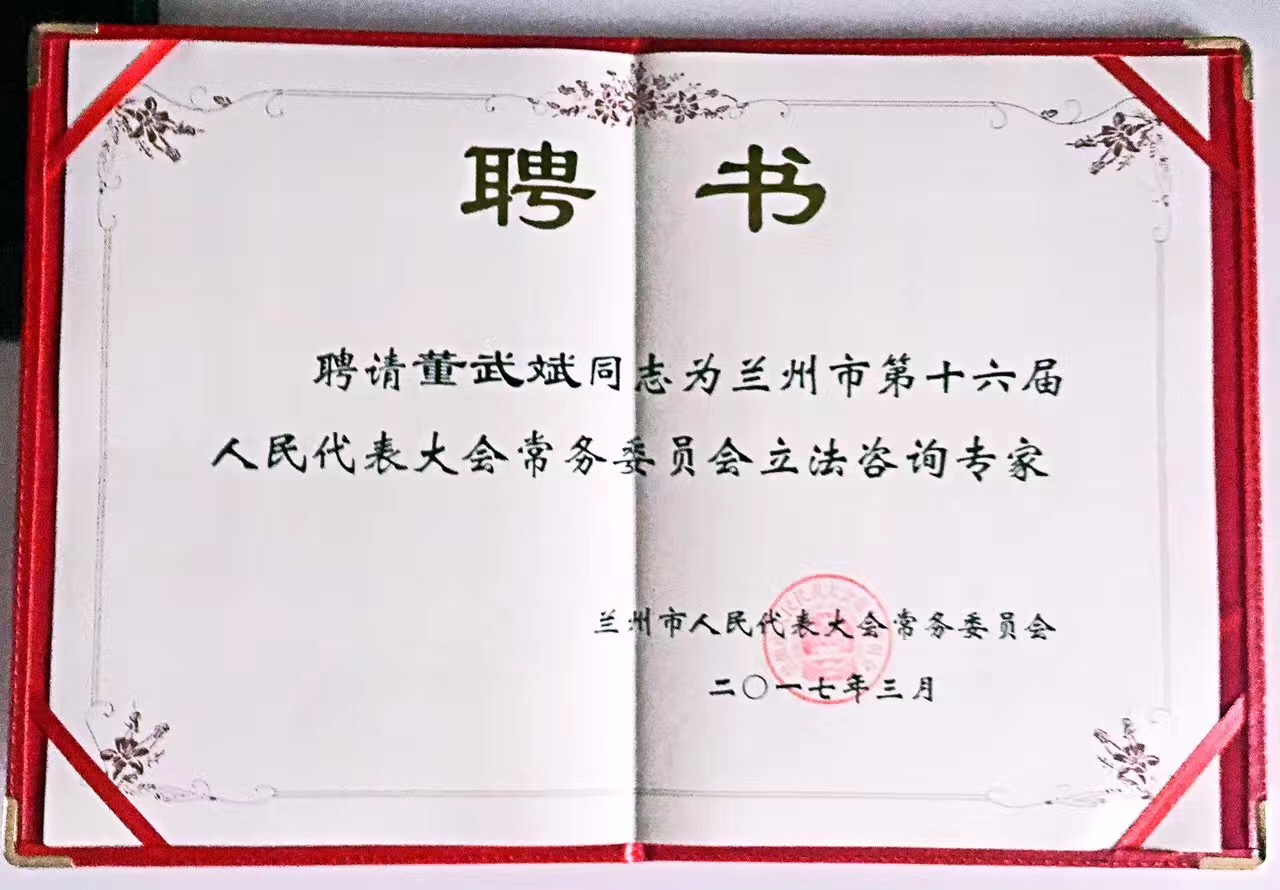 聘书
聘请董武斌同志为兰州市第十六届
人民代表大会常务委员会立法咨询专家
兰州市人民代表大会常务委员会
二〇一七年三月